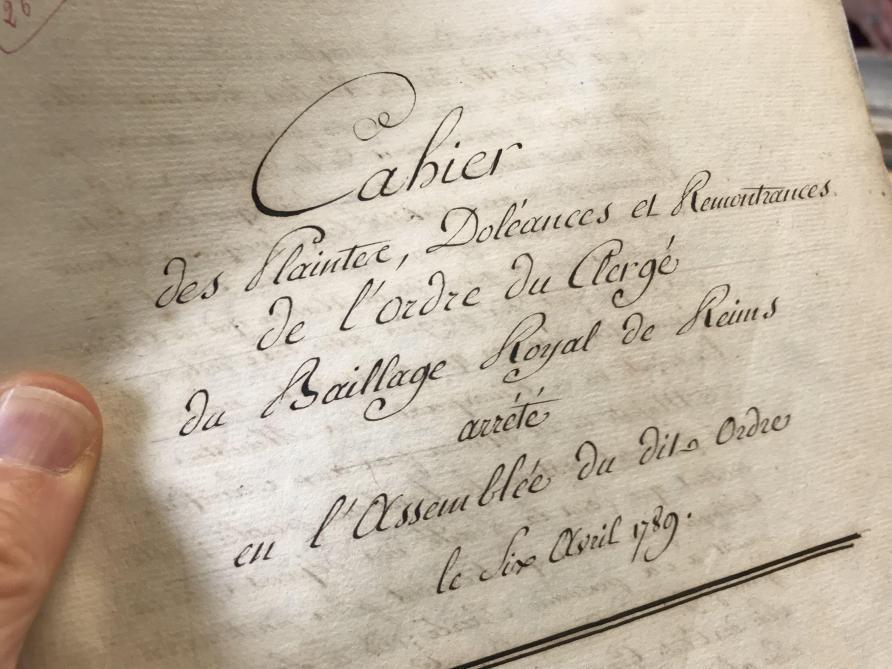 26
Cahier
des Plaintes, Doléances et Remontrances
de l'ordre du Clergé
du Baillage Royal de Reims
arrêté
en l'Assemblée du dit Ordre
le Six Avril 1789.